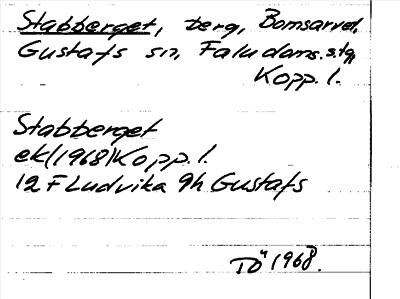 Stabberget, berg, Bomsarvet,
Gustafs sn, Falu doms. stg,
Kopp. l.
Stabberget
ek(1968)Kopp. l.
12 F Ludvika 9h Gustafs
TÖ 1968.